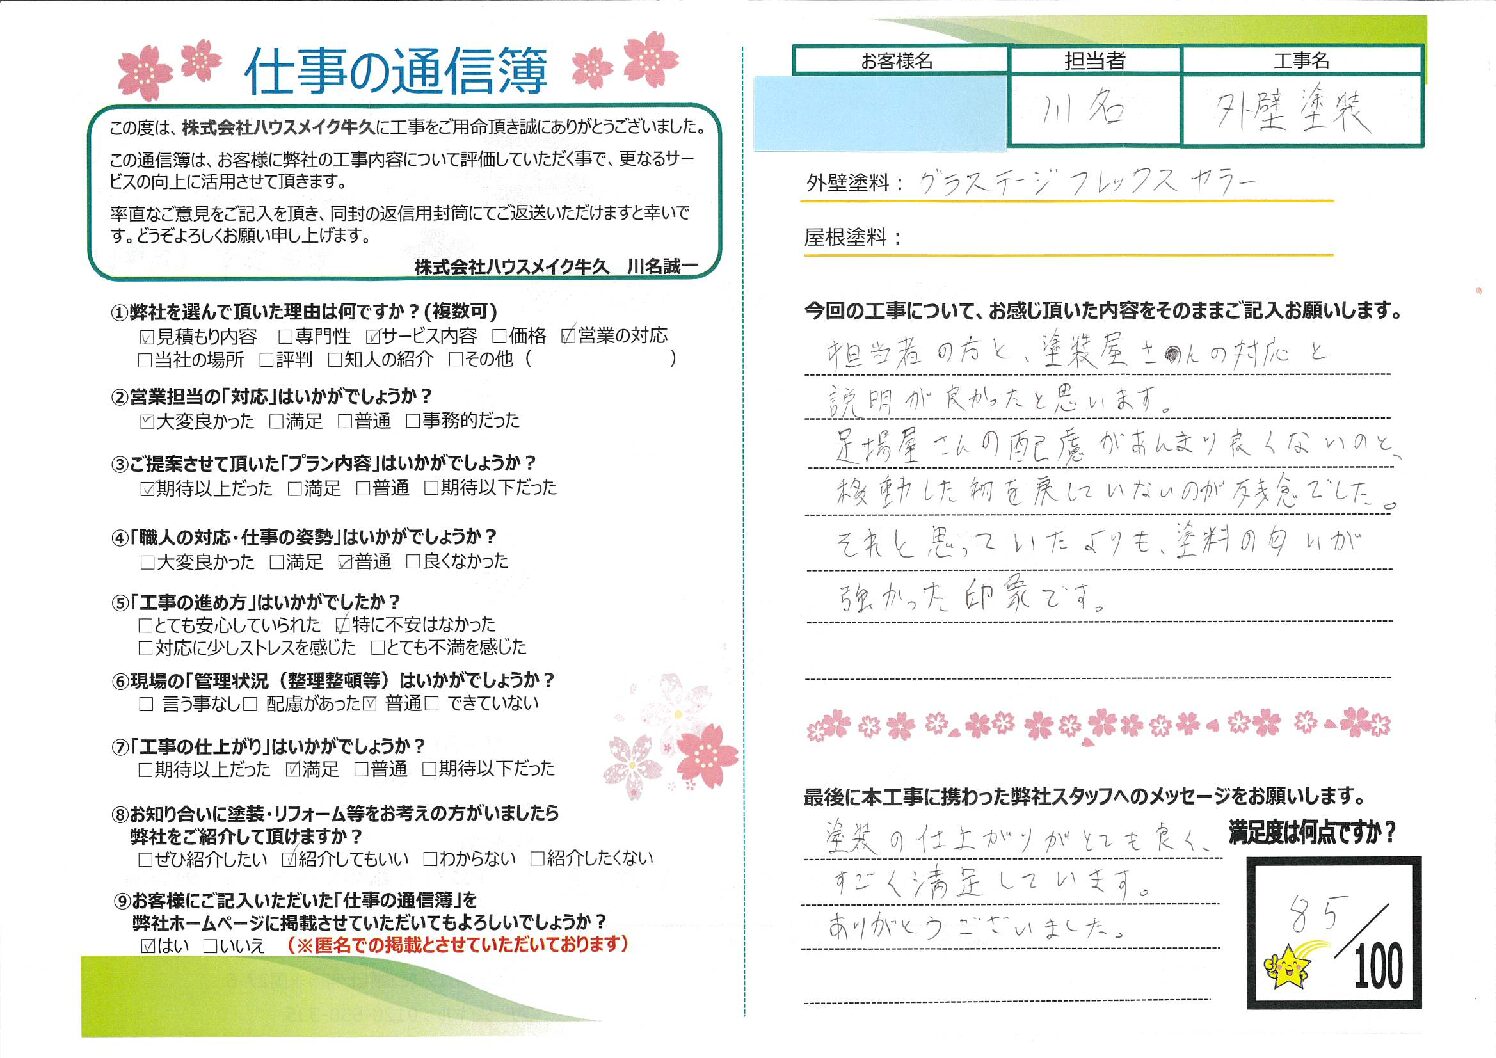 仕事の通信簿
この度は、株式会社ハウスメイク牛久に工事をご用命頂き誠にありがとうございました。
この通信簿は、お客様に弊社の工事内容について評価していただく事で、更なるサー
ビスの向上に活用させて頂きます。
率直なご意見をご記入を頂き、同封の返信用封筒にてご返送いただけますと幸いで
す。どうぞよろしくお願い申し上げます。
株式会社ハウスメイク牛久　川名誠一
①弊社を選んで頂いた理由は何ですか？(複数可)
☑見積もり内容　□専門性　☑サービス内容　□価格　☑営業の対応
□当社の場所　□評判　□知人の紹介　□その他（　　　　　　　）
②営業担当の「対応」はいかがでしょうか？
☑大変良かった　□満足　□普通　□事務的だった
③ご提案させて頂いた「プラン内容」はいかがでしょうか？
☑期待以上だった　□満足　□普通　□期待以下だった
④「職人の対応・仕事の姿勢」はいかがでしょうか？
□大変良かった　□満足　☑普通　□良くなかった
⑤「工事の進め方」はいかがでしたか？
□とても安心していられた　☑特に不安はなかった
□対応に少しストレスを感じた　□とても不満を感じた
⑥現場の「管理状況（整理整頓等）はいかがでしょうか？
□ 言う事なし□ 配慮があった☑ 普通□ できていない
⑦「工事の仕上がり」はいかがでしょうか？
□期待以上だった　☑満足　□普通　□期待以下だった
⑧お知り合いに塗装・リフォーム等をお考えの方がいましたら
弊社をご紹介して頂けますか？
□ぜひ紹介したい　☑紹介してもいい　□わからない　□紹介したくない
⑨お客様にご記入いただいた「仕事の通信簿」を
弊社ホームページに掲載させていただいてもよろしいでしょうか？
☑はい　□いいえ　（※匿名での掲載とさせていただいております）
お客様名　担当者　工事名
川名　外壁塗装
外壁塗料：グラステージフレックスカラー
屋根塗料：
今回の工事について、お感じ頂いた内容をそのままご記入お願いします。
担当者の方と、塗装屋さんの対応と
説明が良かったと思います。
足場屋さんの配慮があんまり良くないのと、
移動した物を戻していないのが残念でした。
それと思っていたよりも、塗料の匂いが
強かった印象です。
最後に本工事に携わった弊社スタッフへのメッセージをお願いします。
塗装の仕上がりがとても良く、
すごく満足しています。
ありがとうございました。
満足度は何点ですか？
85／100